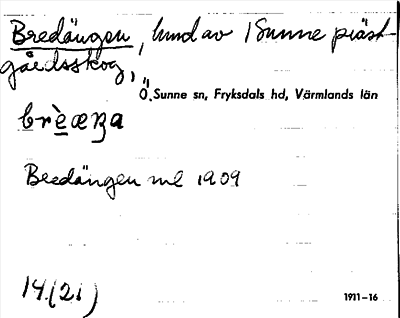 Bredängen, lund av Sunne präst-
gårdsskog,
Ö. Sunne sn, Fryksdals hd, Värmlands län
Bredängen ml 1909
14.(21)
1911–16